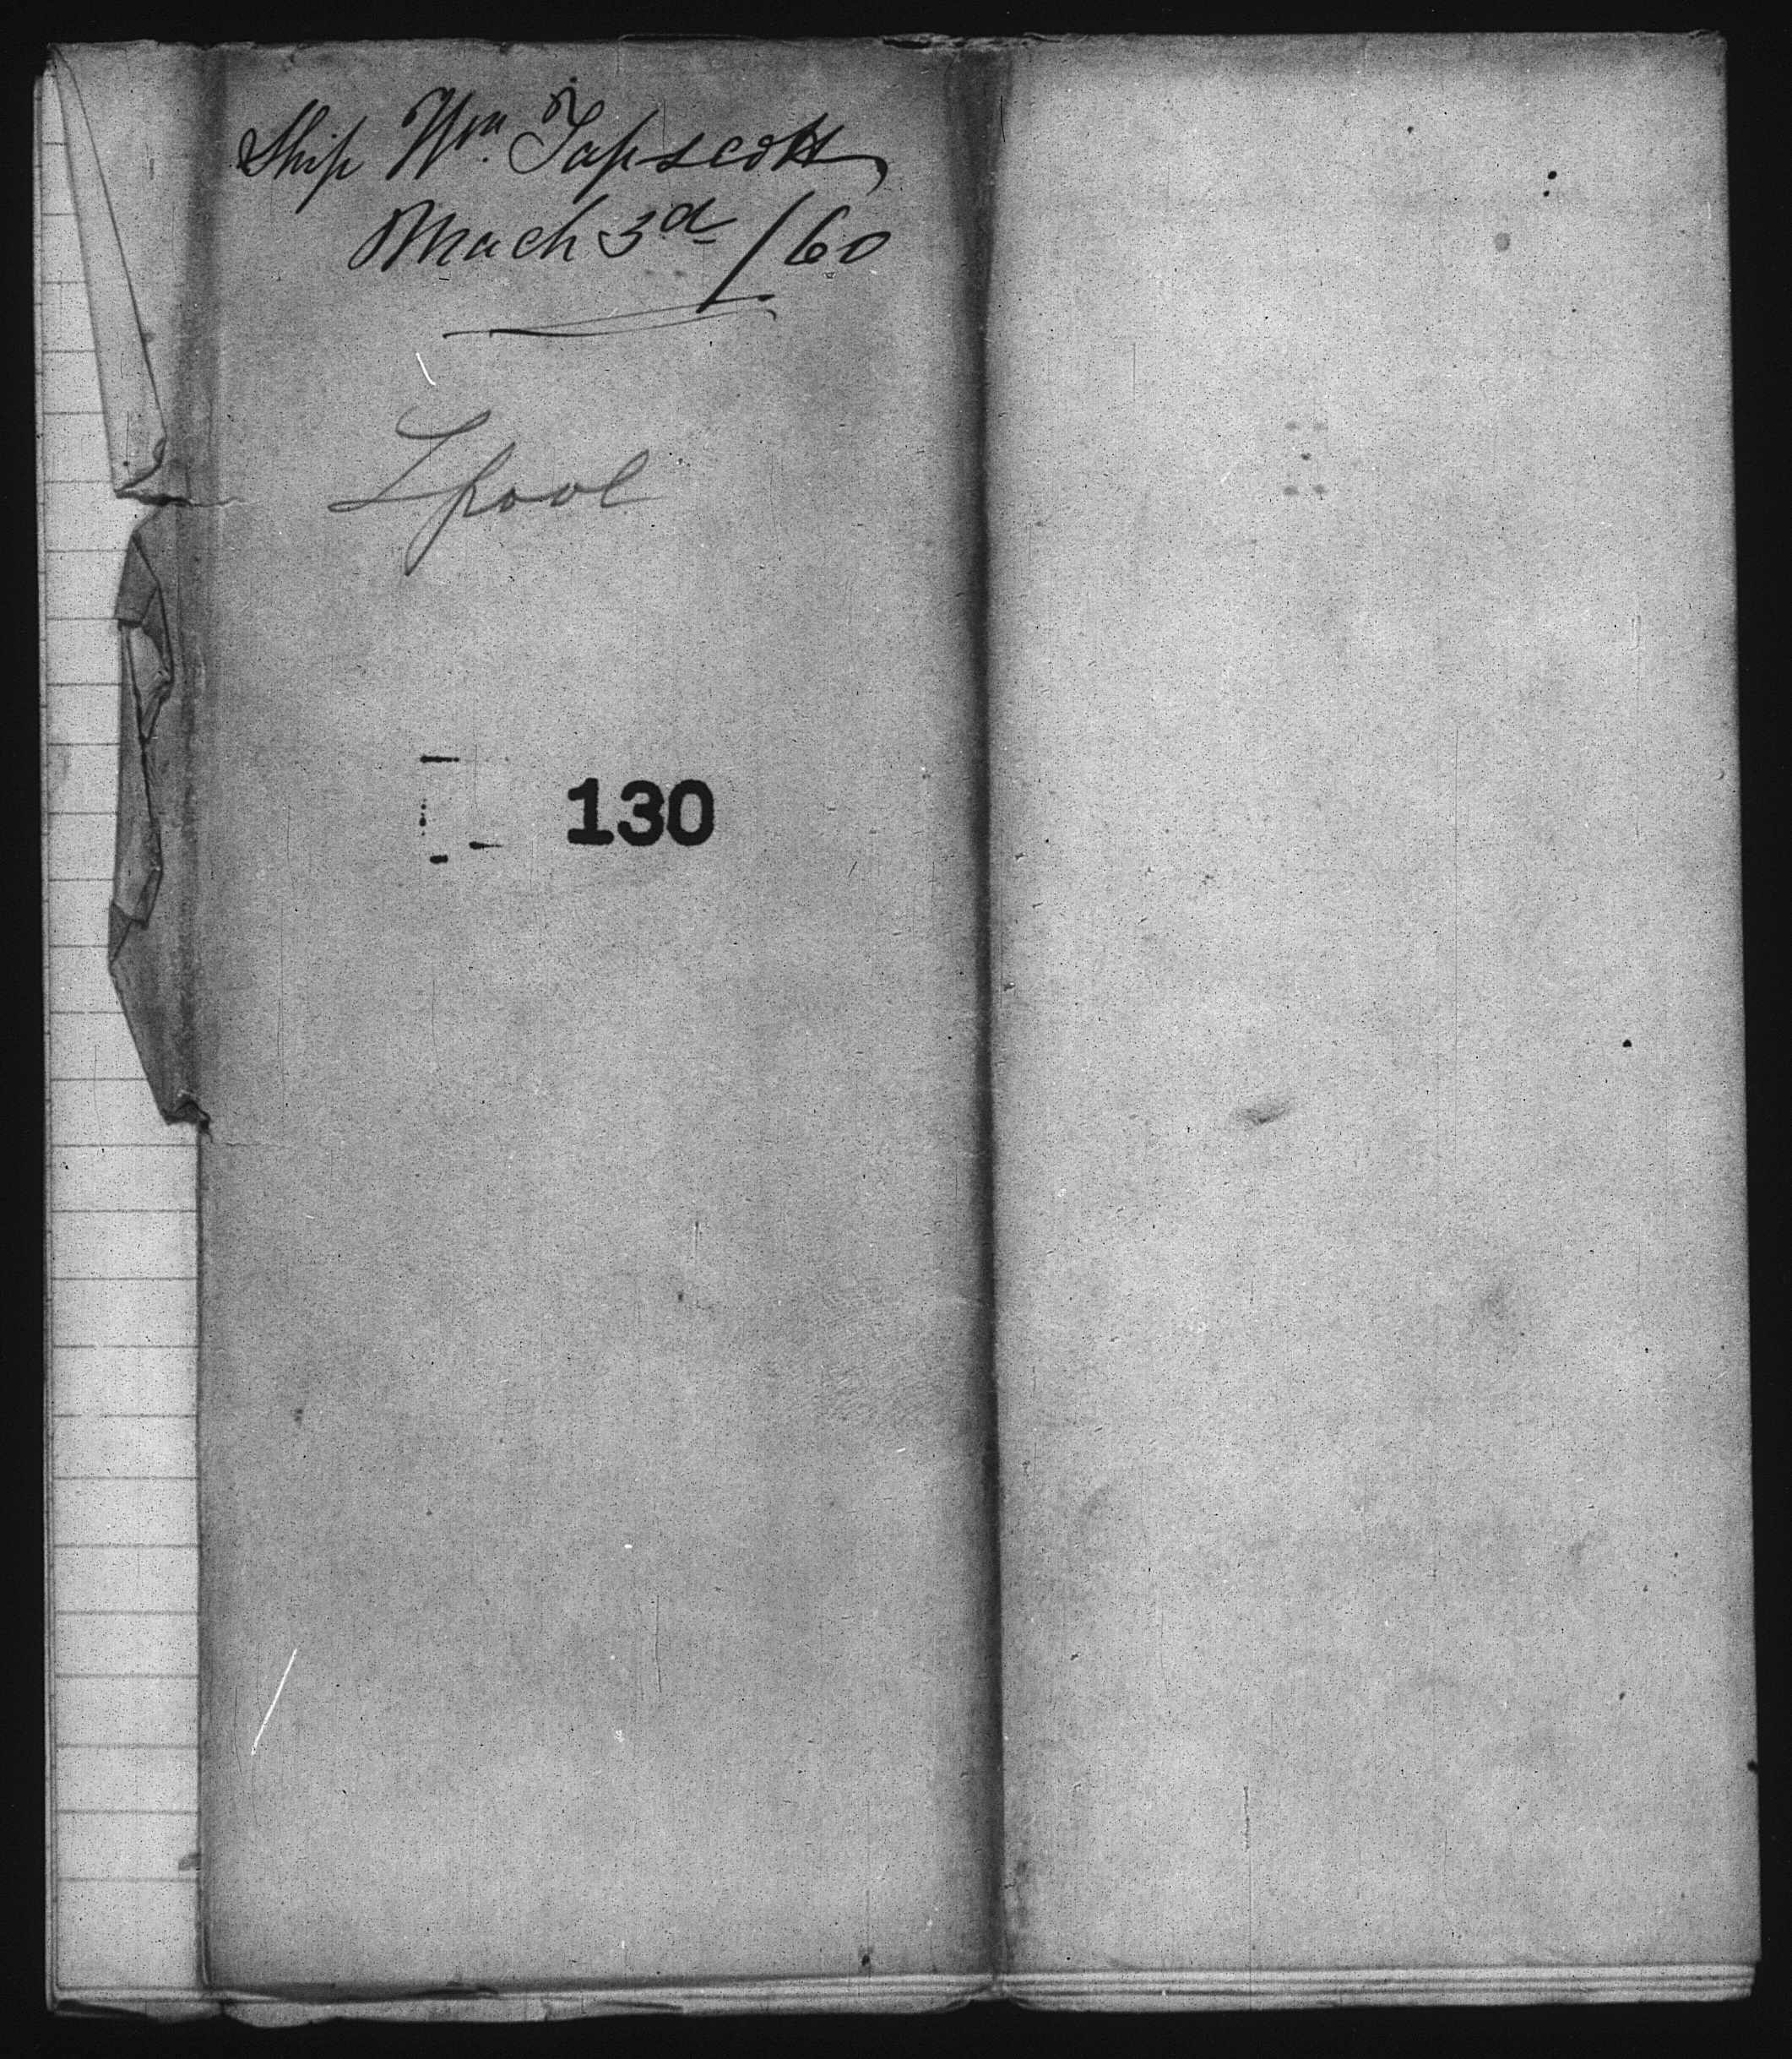 Ship Wm. Tapscott
Mach 3d /60
Lpool
130